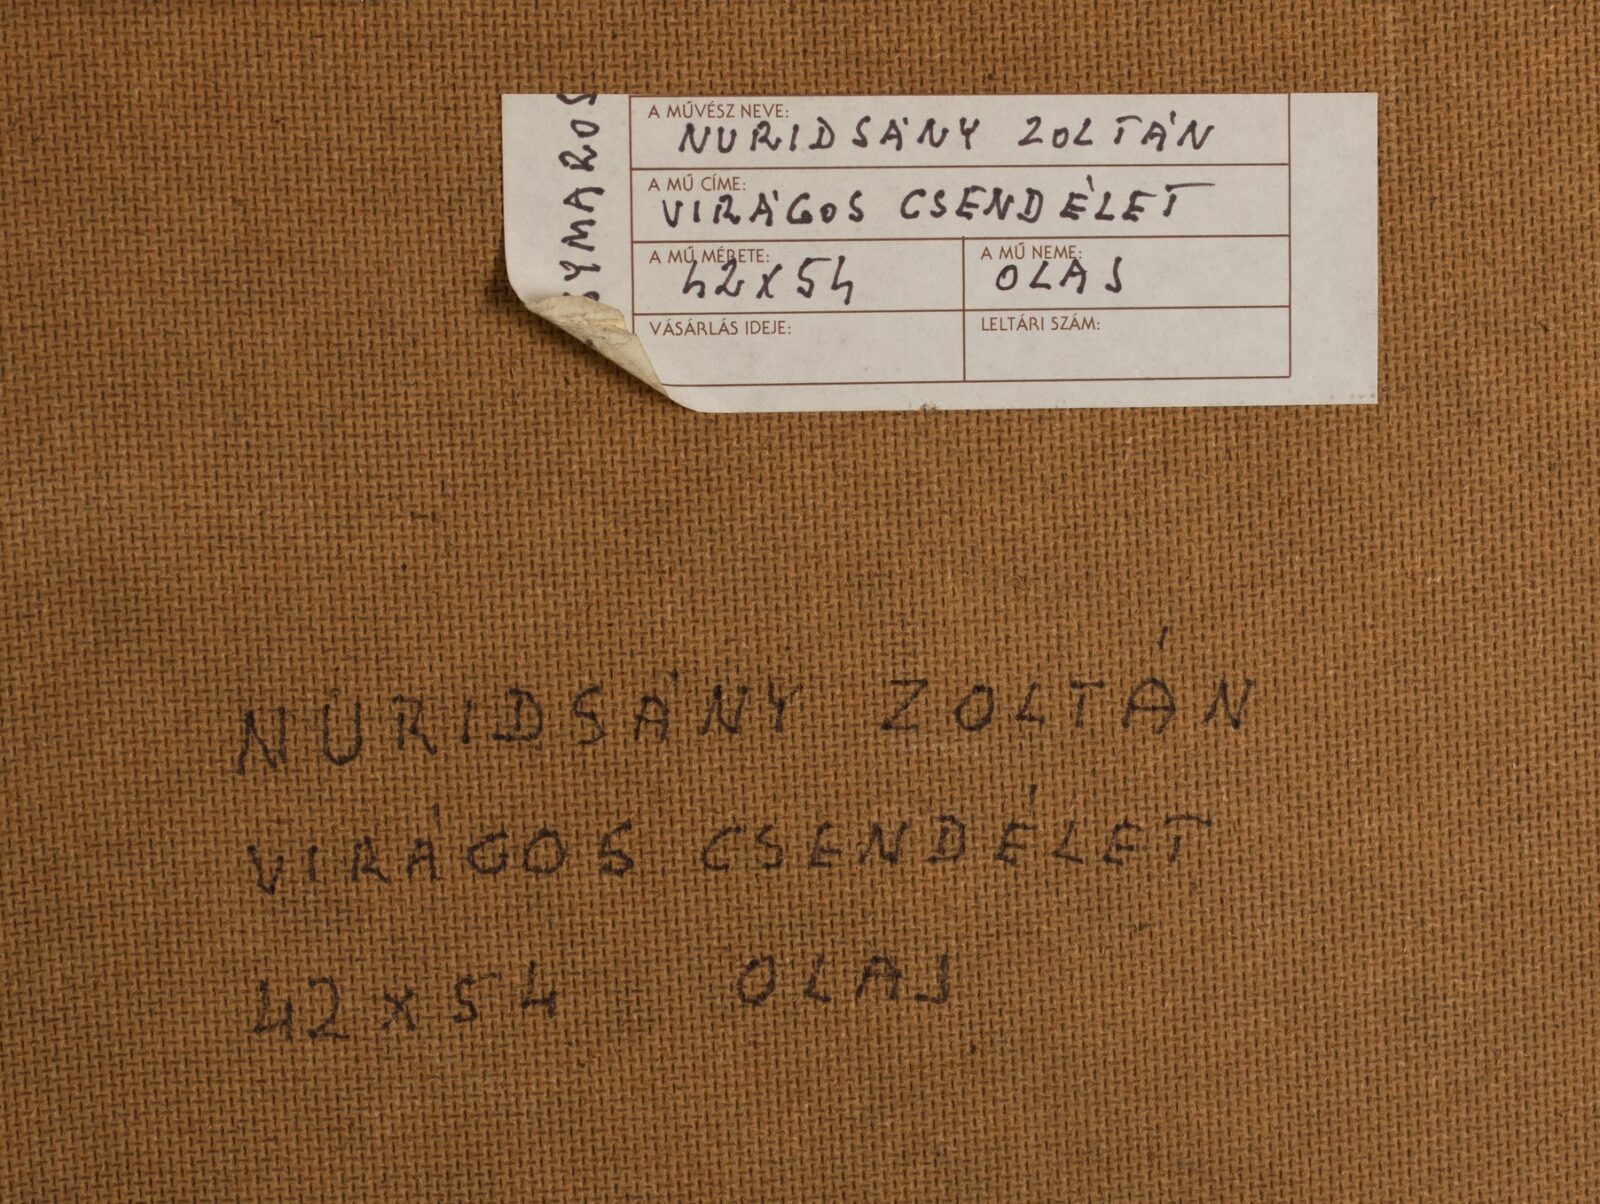 A MŰVÉSZ NEVE:
NURIDSÁNY ZOLTÁN
A MŰ CÍME:
VIRÁGOS CSENDÉLET
A MŰ MÉRETE:
42x54
A MŰ NEME:
OLAJ
VÁSÁRLÁS IDEJE:
LELTÁRI SZÁM:
NURIDSÁNY ZOLTÁN
VIRÁGOS CSENDÉLET
42x54 OLAJ